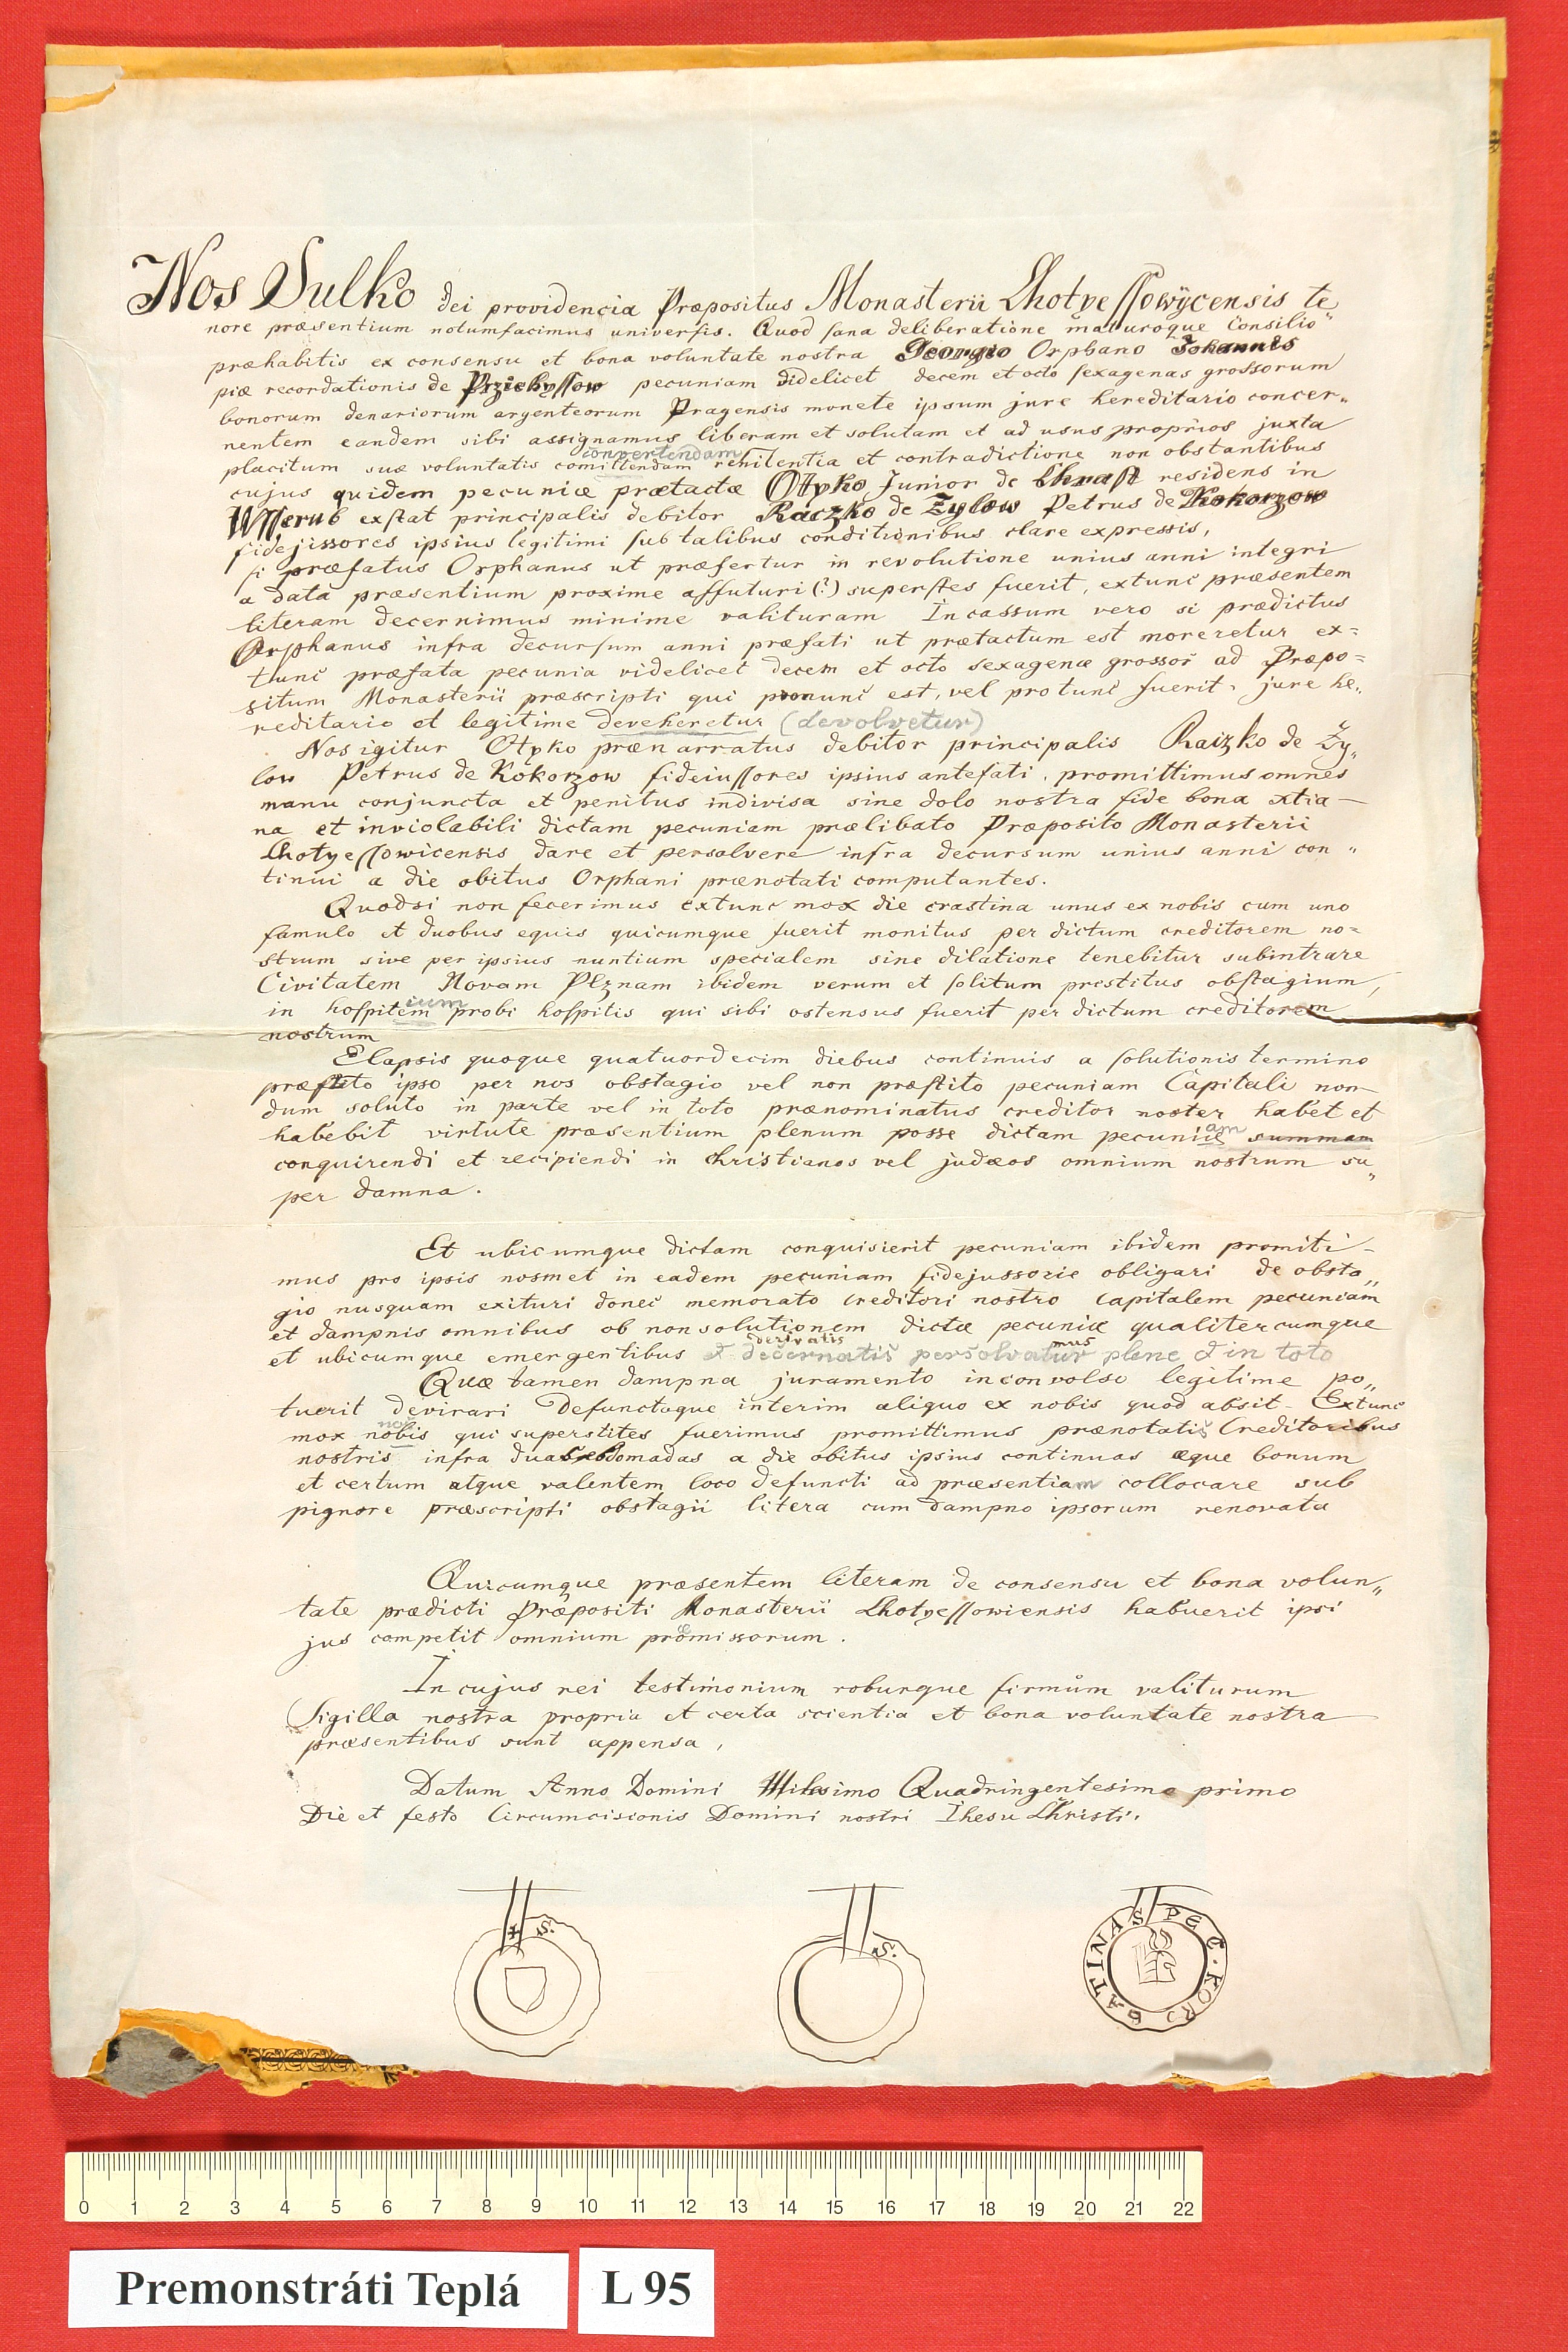 Nos Sulko dei providencia Præpositus Monasterii Lhotyessowÿcensis te„
nore præsentium notumfacimus universis. Quod sana deliberatione maturoque Consilio
præhabitis ex consensu et bona voluntate nostra Georgio Orphano Johannis
piæ recordationis de Przichyssow pecuniam didelicet decem et octo sexagenas grossorum
bonorum denariorum argenteorum Pragensis monete ipsum jure hereditario concer„
nentem eandem sibi assignamus liberam et solutam et ad usus proprios juxta
convertendam
placitum suæ voluntatis comittendam renitentia et contradictione non obstantibus
cujus quidem pecuniæ prætactæ Otyko Junior de Chrast residens in
Wsserub exstat principalis debitor Raczko de Zylow Petrus de Kokorzow
fidejissores ipsius legitimi sub talibus conditionibus clare expressis,
si præfatus Orphanus ut præfertur in revolutione unius anni integri
a data præsentium proxime affuturi (?) superstes fuerit, extunc præsentem
literam decernimus minime valituram Incassum vero si prædictus
Orphanus infra decursum anni præfati ut prætactum est moreretur ex=
tunc præfata pecunia videlicet decem et octo sexagenæ grossor̄ ad Præpo=
situm Monasterii præscripti qui pronunc est, vel protunc fuerit, jure he„
reditario et legitime deveheretur (devolvetur)
Nos igitur Otyko prænarratus debitor principalis Raczko de Zy„
low Petrus de Kokorzow fideiussores ipsius antefati, promittimus omnes
manu conjuncta et penitus indivisa sine dolo nostra fide bona xtia—
na et inviolabili dictam pecuniam prælibato Præposito Monasterii
Lhotyessowicensis dare et persolvere infra decursum unius anni con„
tinui a die obitus Orphani prænotati computantes.
Quodsi non fecerimus extunc mox die crastina unus ex nobis cum uno
famulo et duobus equis quicumque fuerit monitus per dictum creditorem no=
strum sive per ipsius nuntium specialem sine dilatione tenebitur subintrare
Civitatem Novam Plznam ibidem verum et solitum prestitus obstagium,
ium
in hospitem probi hospitis qui sibi ostensus fuerit per dictum creditorem
nostrum
Elapsis quoque quatuordecim diebus continuis a solutionis termino
præstito ipso per nos obstagio vel non præstito pecuniam Capitali non—
dum soluto in parte vel in toto prænominatus creditor noster habet et
am
habebit virtute præsentium plenum posse dictam pecuniæ summam
conquirendi et recipiendi in christianos vel judæos omnium nostrum su„
per damna.
Et ubicumque dictam conquisierit pecuniam ibidem promiti-
mus pro ipsis nosmet in eadem pecuniam fidejussorie obligari de obsta„
gio nusquam exituri donec memorato Creditori nostro Capitalem pecuniam
et dampnis omnibus ob nonsolutionem dictæ pecuniæ qualitercumque
derivatis mus
et ubicumque emergentibus et decernatis persolvatur plene et in toto
Quæ tamen dampna juramento inconvolso legitime po„
tuerit devirari Defunctoque interim aliquo ex nobis quod absit – Extunc
nos
mox nobis qui superstites fuerimus promittimus prænotatis Creditoribus
nostris infra duas ebdomadas a die obitus ipsius continuas æque bonum
et certum atque valentem loco defuncti ad præsentiam collocare sub
pignore præscripti obstagii litera cum dampno ipsorum renovata
Quicumque præsentem literam de consensu et bona volun„
tate prædicti Præpositi Monasterii Lhotyessowiensis habuerit ipsi
jus competit omnium promissorum.
In cujus rei testimonium roburque firmům valiturum
Sigilla nostra propria et certa scientia et bona voluntate nostra
præsentibus sunt appensa,
Datum Anno Domini Milesimo Quadringentesimo primo
Die et festo Circumcisconis Domini nostri Ihesu Christi.
+ S.
S.
S PEC
0 1 2 3 4 5 6 7 8 9 10 11 12 13 14 15 16 17 18 19 20 21 22
Premonstráti Teplá
L 95